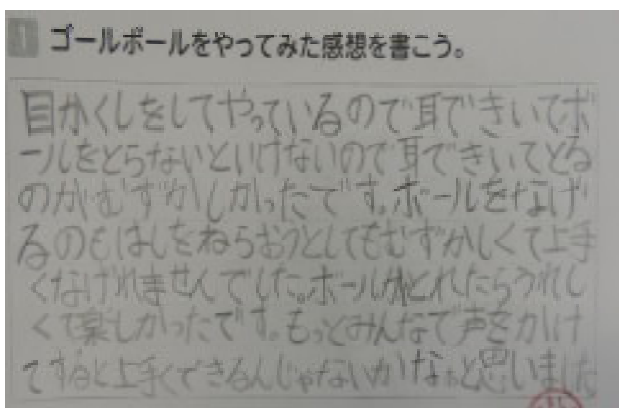 1 ゴールボールをやってみた感想を書こう。
目かくしをしてやっているので耳できいてボ
ールをとらないといけないので耳できいてとる
のがむずかしかったです。ボールをなげ
るのもはしをねらおうとしてもむずかしくて上手
くなげれませんでした。ボールがとれたらうれし
くて楽しかったです。もっとみんなで声をかけ
てすると上手くできるんじゃないかなぁと思いました